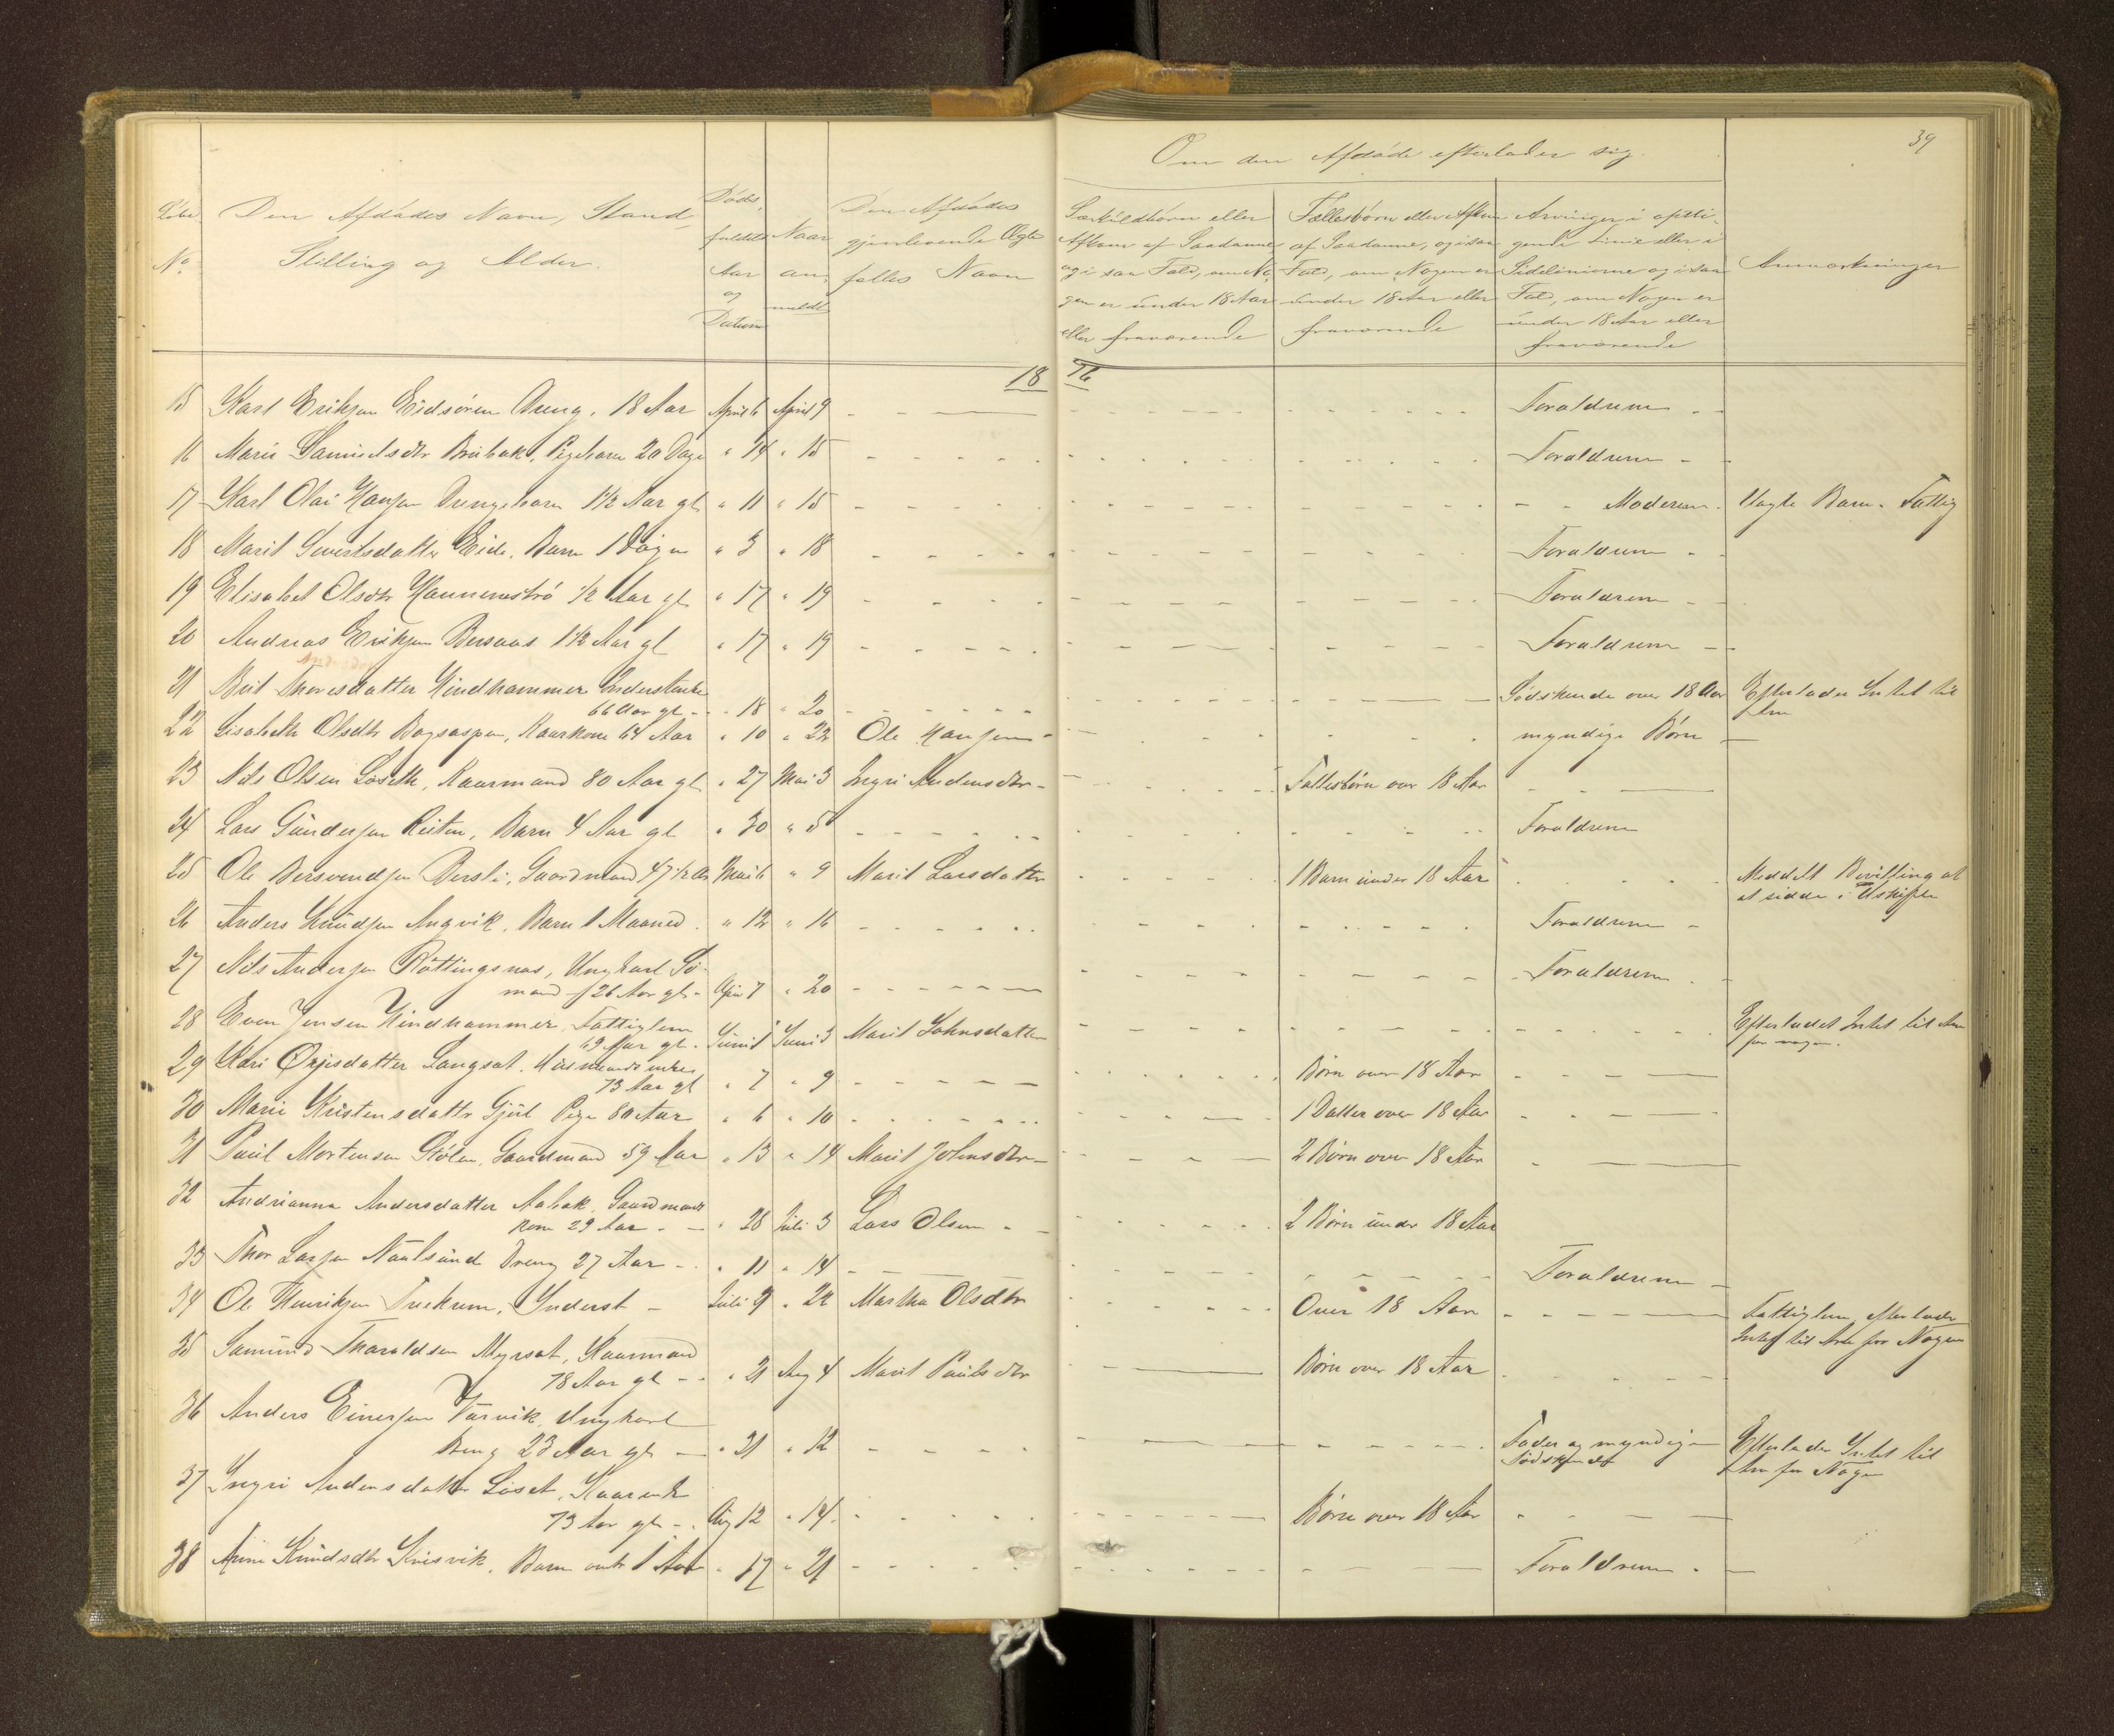 39
Om den Afdøde efterlader sig.
Løbe No. Den Afdødes Navn, Stand, Stilling og Alder. Dødsfaldets Aar og Datum Naar anmeldt Den Afdødes gjenlevende Ægtefælles Navn Særkuldbørn eller Afkom af Saadanne og i saa Fald, om Nogen er under 18 Aar eller fraværende Fællesbørn eller Afkom af Saadanne, og i saa Fald, om Nogen er under 18 Aar eller fraværende Arvinger i opstigende Linie eller i Sidelinierne og i saa Fald, om Nogen er under 18 Aar eller fraværende Anmærkninger
1876
15 Karl Eriksen Eidsøren Dreng, 18 Aar April 6 April 9 Forældrene
16 Marie Samuelsdtr Brubak, Pigebarn 20 Dage " 14 " 15 Forældrene
17 Karl Olai Hansen Drengebarn 1 1/2 Aar gl " 11 " 15 Moderen Uægte Barn. Fattig
18 Marit Sivertsdatter Eide, Barn 1 Døgn " 3 " 18 Forældrene
19 Elisabet Olsdtr 1/2 Aar gl " 17 " 19 Forældrene
20 Andreas Eriksen Bersaas 1 1/2 Aar gl " 17 " 19 Forældrene
Andersdor
21 Brit Thoresdatter Hindhammer Inderstenke
66 Aar gl " 18 " 20 Sødskende over 18 Aar Efterlader Intet til
Arv
22 Lisabeth Olsdtr Bogsaspen, Kaarkone 64 Aar " 10 " 22 Ole Hansen myndige Børn
23 Nils Olsen Løseth, Kaarmand 80 Aar gl " 27 Mai 3 Ingri Andersdtr Fællesbørn over 18 Aar
24 Lars Gundersen Reiten, Barn 4 Aar gl " 30 " 5 Forældrene
25 Ole Bersvendsen Bersli, Gaardmand 47 1/2 Mai 6 " 9 Marit Larsdatter 1 Barn under 18 Aar Meddelt Bevilling at
at sidde i Uskifte
26 Anders Knudsen Angvik, Barn 1 Maaned " 12 " 16 Forældrene
27 Nils Andersen Røttingsnæs, Ungkarl Sø-
mand 26 Aar gl April 7 " 20 Forældrene
28 Even Jensen Hindhammer, Fattiglem
69 Aar gl Juni 1 Juni 3 Marit Johnsdatter Efterladet Intet til Arv
for nogen.
29 Kari Langsæt, Husmandsenke
73 Aar gl " 7 " 9 Børn over 18 Aar
30 Marie Kristensdattr Gjul Pige 80 Aar " 6 " 10 1 Datter over 18 Aar
31 Paul Mortensen Stølen, Gaardmand 59 Aar " 13 " 14 Marit Johnsdtr 2 Børn over 18 Aar
32 Andrianna Andersdatter Aabak, Gaardmands
kone 29 Aar " 28 Juli 3 Lars Olsen 2 Børn under 18 Aar
33 Thor Larsen Naalsund Dreng 27 Aar " 11 " 14 Forældrene
34 Ole Henriksen Trækrem, Inderst Juli 9 " 22 Martha Olsdtr Over 18 Aar Fattiglem, efterlader
Intet til Arv for Nogen
35 Samund Tharaldsen Myrsæt, Kaarmand
78 Aar gl " 21 Aug 4 Marit Paulsdtr Børn over 18 Aar
36 Anders Einersen Vaarvik, Ungkarl
Dreng 23 Aar gl " 21 " 12 Fader og myndige
Sødskende Efterlader Intet til
Arv for Nogen
37 Ingri Andersdatter Løset, Kaarenke
73 Aar gl Aug 12 " 14 Børn over 18 Aar
38 Anne Knudsdtr Kvisvik, Barn omtr 1 Aar " 17 " 21 Forældrene